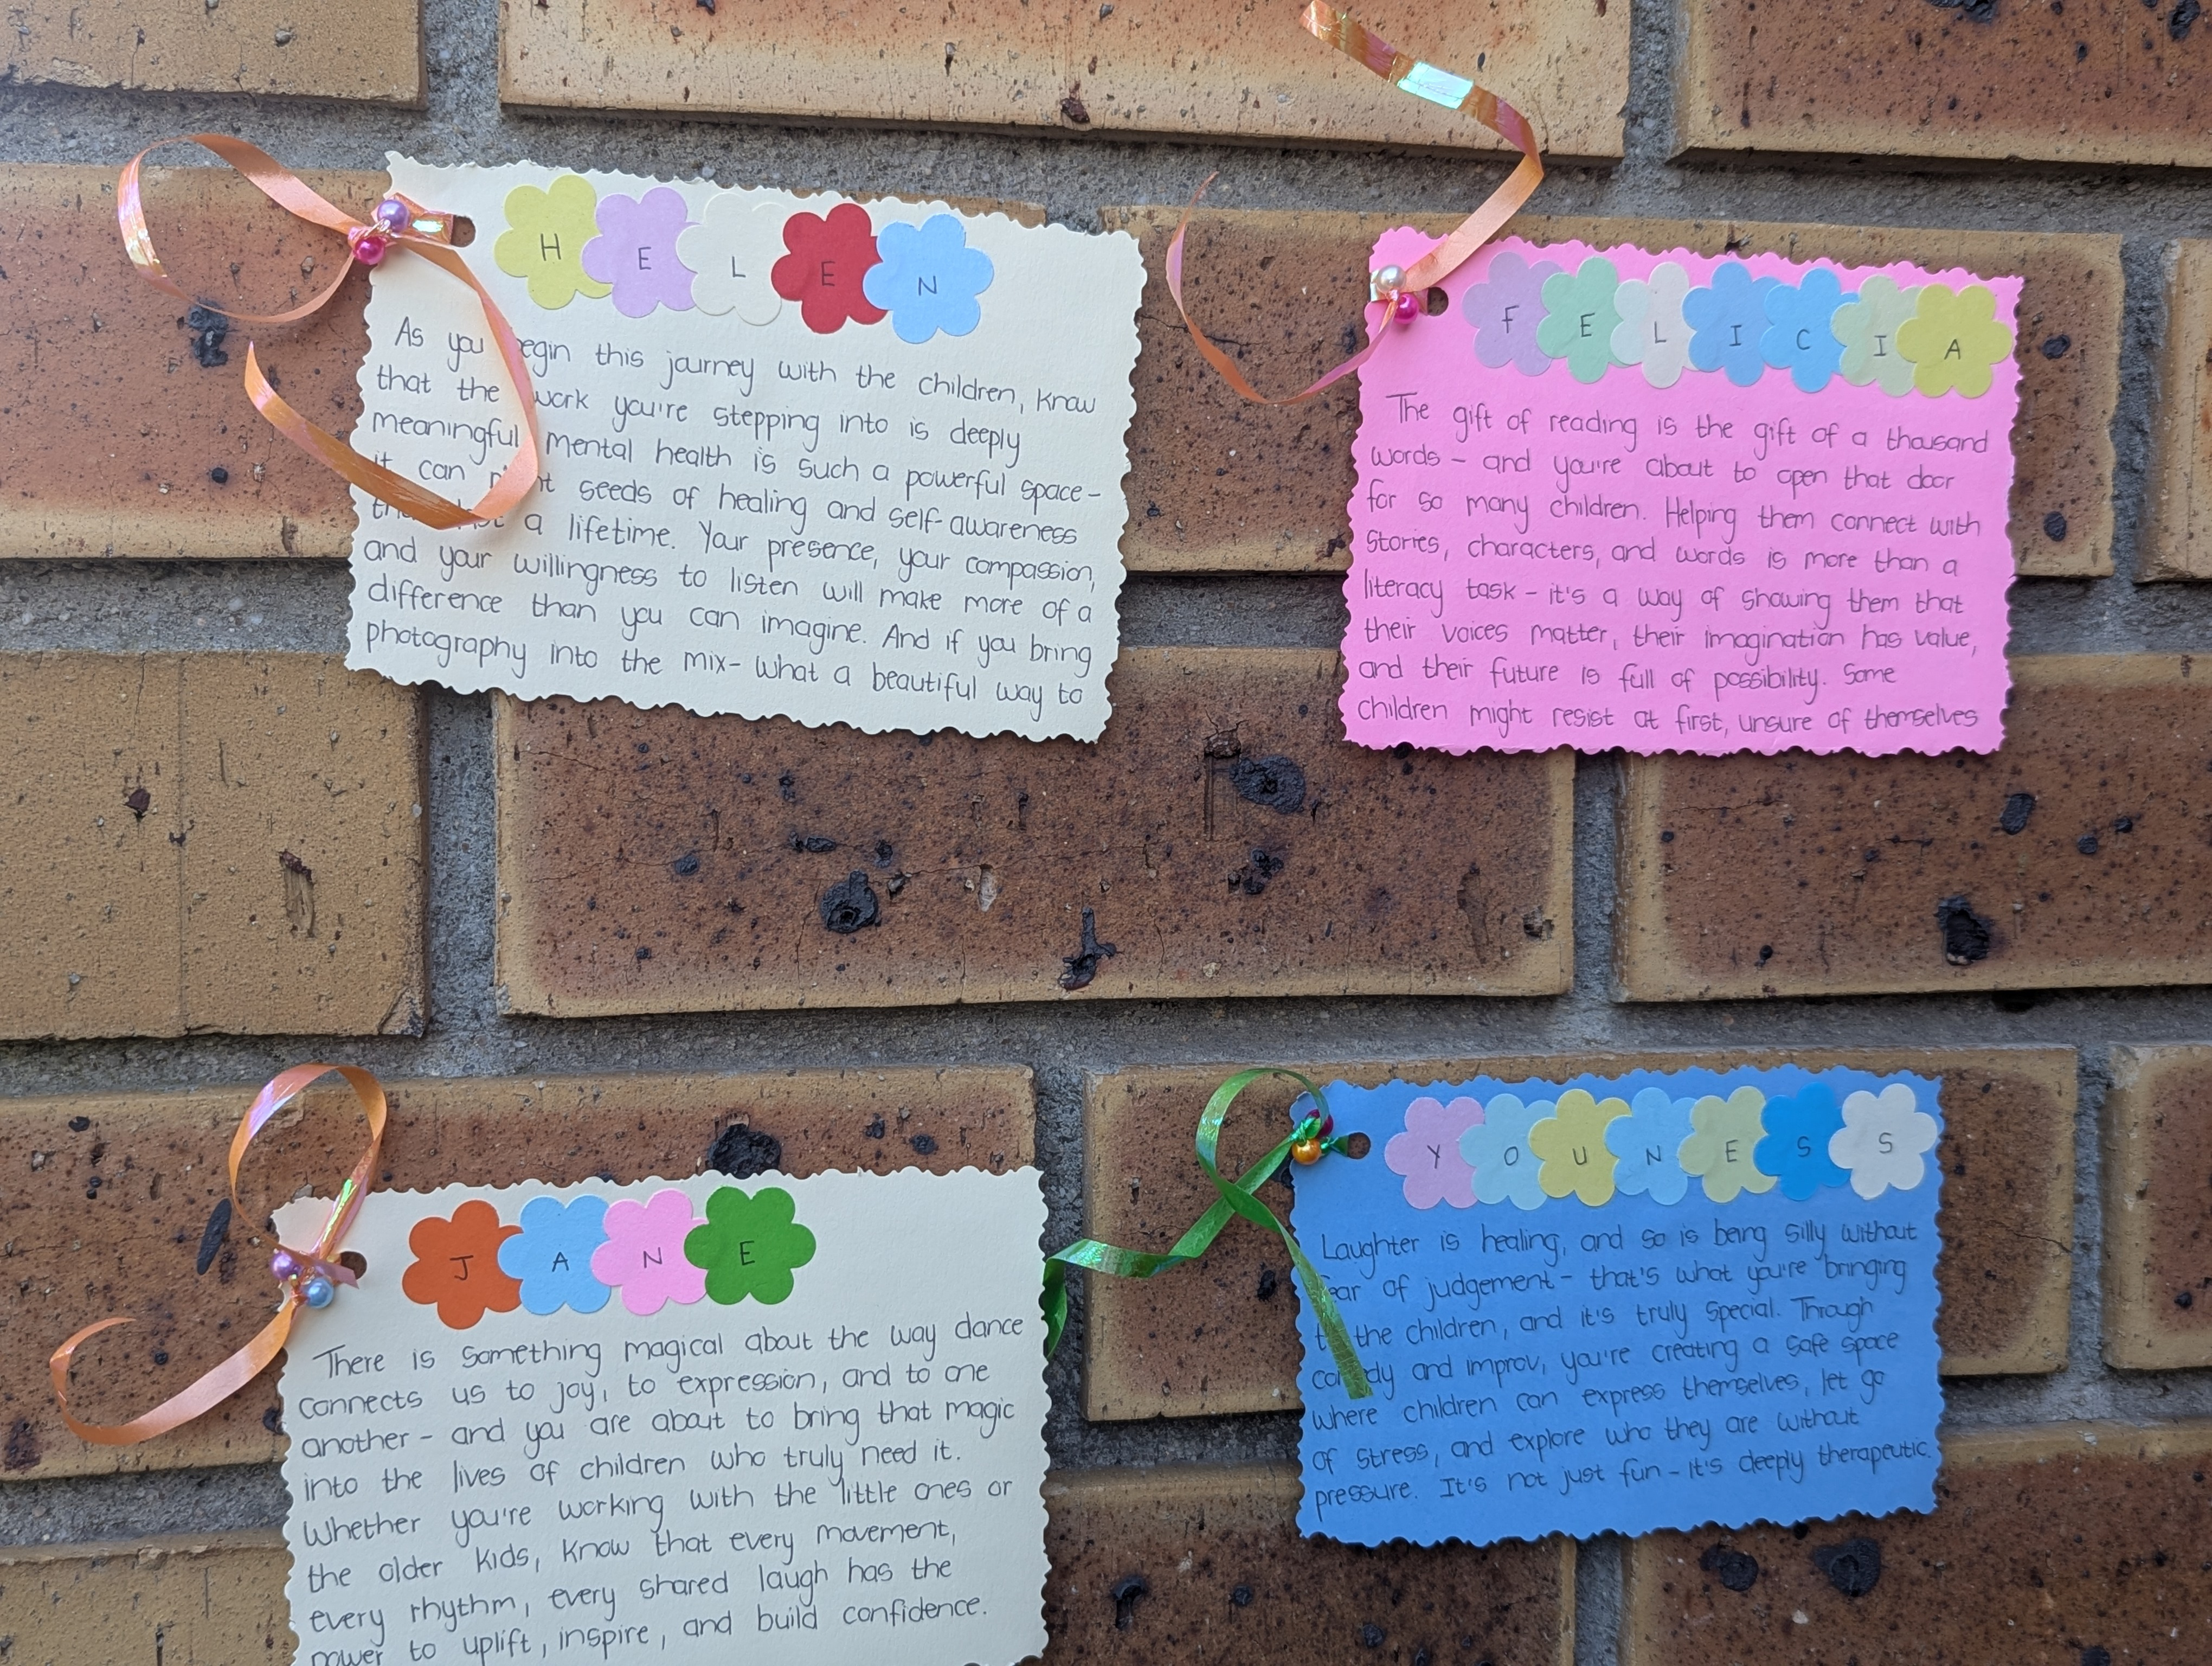 HELEN
As you begin this journey with the children, know
that the work you're stepping into is deeply
meaningful mental health is such a powerful space-
it can seeds of healing and self-awareness
a lifetime. Your presence, your compassion,
and your willingness to listen will make more of a
difference than you can imagine. And if you bring
photography into the mix- what a beautiful way to
FELICIA
The gift of reading is the gift of a thousand
words - and you're about to open that door
for so many children. Helping them connect with
stories, characters, and words is more than a
literacy task - it's a way of showing them that
their voices matter, their imagination has value,
and their future is full of possibility. Some
children might resist at first, unsure of themselves
JANE
There is something magical about the way dance
connects us to joy, to expression, and to one
another - and you are about to bring that magic
into the lives of children who truly need it.
Whether you're working with the little ones or
the older kids, know that every movement,
every rhythm, every shared laugh has the
power to uplift, inspire, and build confidence.
YOUNESS
Laughter is healing, and so is being silly without
fear of judgement - that's what you're bringing
to the children, and it's truly special. Through
comedy and improv, you're creating a safe space
where children can express themselves, let go
of stress, and explore who they are without
pressure. It's not just fun - it's deeply therapeutic.